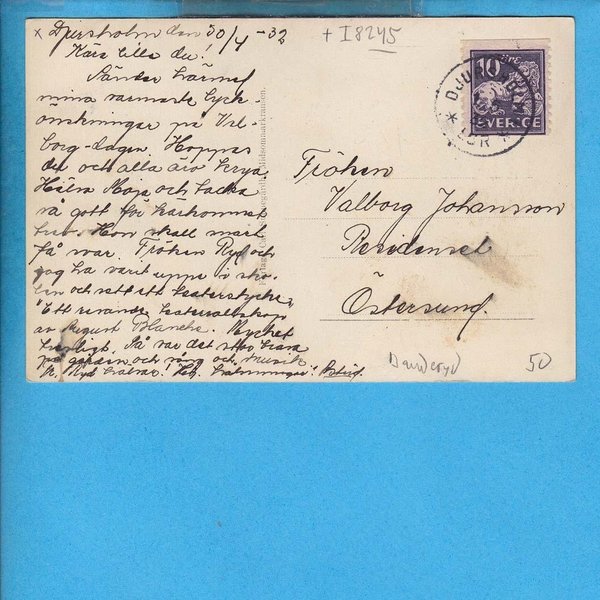 x Djursholm den 30/4 -32
+ I8245
Kära lilla du!
Sänder härmed
mina varmaste lyck-
önskningar på Val-
borg-dagen. Hoppas
du och alla äro krya.
Hälsa Maja och tacka
så gott för
Hon skall snart
få svar. Fröken Ryd och
jag ha varit uppe i sko-
lan och sett ett teaterstycke,
"Ett resande teatersällskap"
av August Blanche. Mycket
härligt. Så var det stor brasa
på gården och sång och musik.
Fr. Ryd hälsar! Hälsningar!
10
SVERIGE
Fröken
Valborg Johansson
Residenset
Östersund.
Danderyd
50